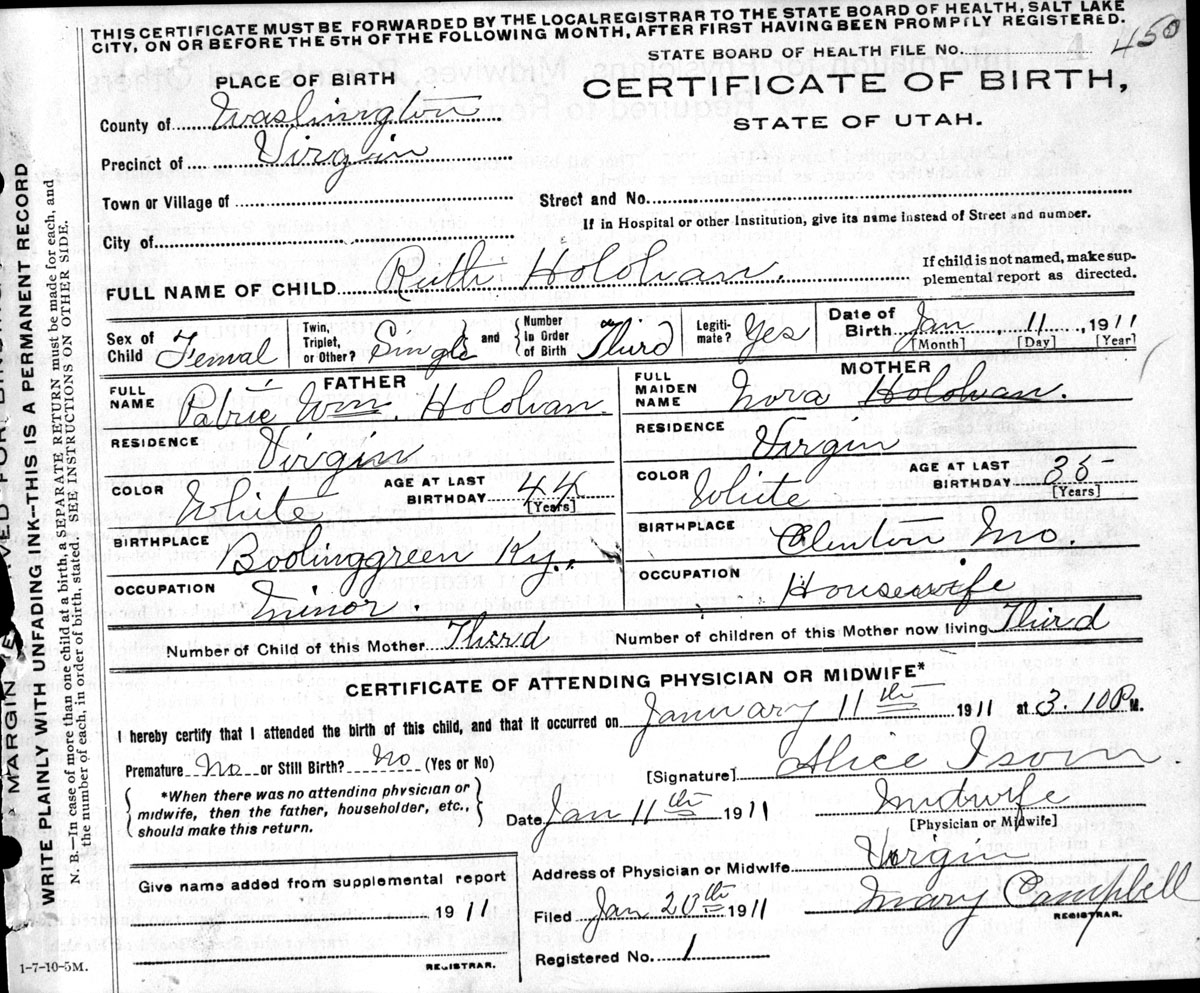 THIS CERTIFICATE MUST BE FORWARDED BY THE LOCAL REGISTRAR TO THE STATE BOARD OF HEALTH, SALT LAKE
CITY, ON OR BEFORE THE 5TH OF THE FOLLOWING MONTH, AFTER FIRST HAVING BEEN PROMPTLY REGISTERED.
STATE BOARD OF HEALTH FILE NO. 450
PLACE OF BIRTH
CERTIFICATE OF BIRTH,
STATE OF UTAH.
County of Washington
Precinct of Virgin
Town or Village of
Street and No.
If in Hospital or other Institution, give its name instead of Street and number.
City of
FULL NAME OF CHILD Ruth Holohan.
If child is not named, make sup-
plemental report as directed.
Sex of Child Femal
Twin, Triplet, or Other? Single
and Number in Order of Birth Third
Legiti-mate? Yes
Date of Birth Jan, 11, 1911
[Month] [Day] [Year]
FATHER
FULL NAME Patric Wm. Holohan.
RESIDENCE Virgin
COLOR White
AGE AT LAST BIRTHDAY 44
[Years]
BIRTHPLACE Boolinggreen Ky.
OCCUPATION Minor.
MOTHER
FULL MAIDEN NAME Nora Holohan.
RESIDENCE Virgin
COLOR White
AGE AT LAST BIRTHDAY 35
[Years]
BIRTHPLACE Clenton Mo.
OCCUPATION Housewife
Number of Child of this Mother Third
Number of children of this Mother now living Third
CERTIFICATE OF ATTENDING PHYSICIAN OR MIDWIFE*
I hereby certify that I attended the birth of this child, and that it occurred on January 11th 1911 at 3.10 P M.
Premature No or Still Birth? No (Yes or No)
*When there was no attending physician or
midwife, then the father, householder, etc.,
should make this return.
[Signature] Alice Isom
Date Jan 11th 1911
Midwife
[Physician or Midwife]
Give name added from supplemental report
1911
REGISTRAR.
Address of Physician or Midwife Virgin
Filed Jan 20th 1911
Mary Campbell
REGISTRAR.
Registered No. 1
1-7-10-5M.
WRITE PLAINLY WITH UNFADING INK--THIS IS A PERMANENT RECORD
N. B.—In case of more than one child at a birth, a SEPARATE RETURN must be made for each, and
the number of each, in order of birth, stated. SEE INSTRUCTIONS ON OTHER SIDE.